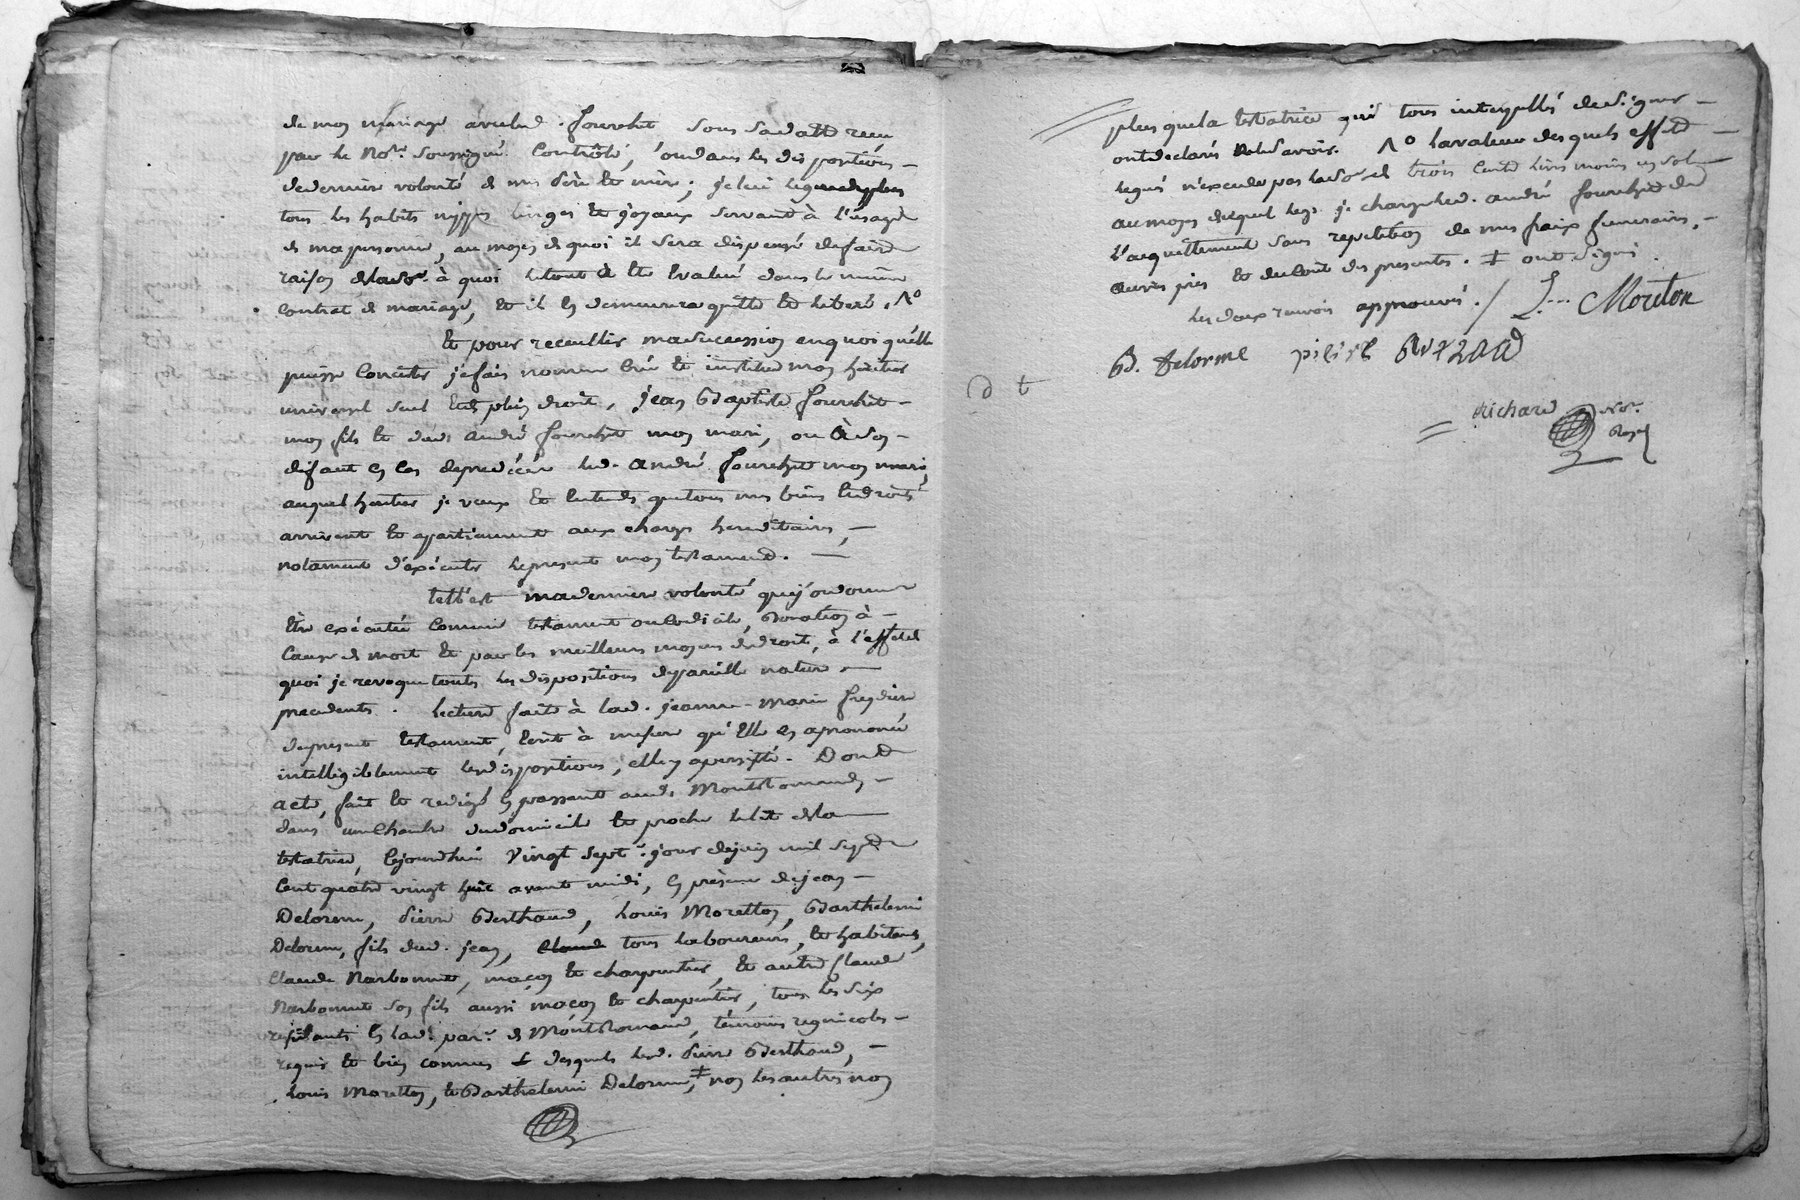 de mon mariage avec led. fourchet sous sa datte reçu
par le No.re soussigné Contrôlé, soudans les dispositions
de derniere volonté de mes père et mère; je lui legue de plus
tous les habits nippes linges et joyaux servant à l'usage
de ma personne, au moyen de quoi il sera dispensé de faire
raison à quoi le tout a été Evalué dans le même
contrat de mariage, et il en demeurera quitte et liberé. No
Et pour recueillir ma succession en quoi qu'elle
puisse Consister je fais nomme Crée et institue mon héritier
universel seul et de plein droit, jean Baptiste fourchet
mon fils et dud. andré fourchet mon mari, ou à son
défaut en cas de prédécès led. andré fourchet mon mari,
auquel heritier je veux et Entends que tous mes biens et droits
arrivent et apartiennent aux charges hereditaires,
notament d'éxécuter le present mon testament.
telle est ma derniere volonté que j'ordonne
Etre exécutée Comme testament ou Codicile, Donation à
Cause de mort et par les meilleurs moyens de droit, à l'effet de
quoi je revoque toutes les dispositions de pareille nature
precedents. lecture faite à lad. jeanne-Marie freydiere
du present testament, Ecrit à mesure qu'Elle en a prononcé
intelligiblement les dispositions, elle y a persisté. Dont
acte, fait et redigé en passant aud. Montromand,
dans une Chambre du domicile et proche le lit de la
testatrice, cejourdhui vingt sept.e jour de juin mil sept
Cent quatre vingt huit avant midi, en présence de jean
Delorme, pierre Berthaud, Louis Moretton, Barthelemi
Delorme, fils dud. jean, tous laboureurs, et habitans,
Claude Narbonnet, maçon et charpentier, et autre Claude
Narbonnet son fils aussi maçon et charpentier, tous les six
residants en lad. par.e de Montromand, témoins regnicoles
requis et bien connus desquels led. pierre Berthaud,
Louis Moretton, et Barthelemi Delorme, ‡ non les autres non
plus que la testatrice qui tous interpellés de signer
ont declaré ne le savoir. No la valeur desquels effets
legués n'excede pas la so.e de trois Cents livres moins un sol
au moyen duquel legs je charge led. andré fourchet de
l'acquittement sans repetition de mes fraix funeraires,
aux prix et du Coût des presentes. ‡ ont signé
les deux renvois approuvés. / L... Moreton
B. Delorme pierre
Richard No.re
Royal